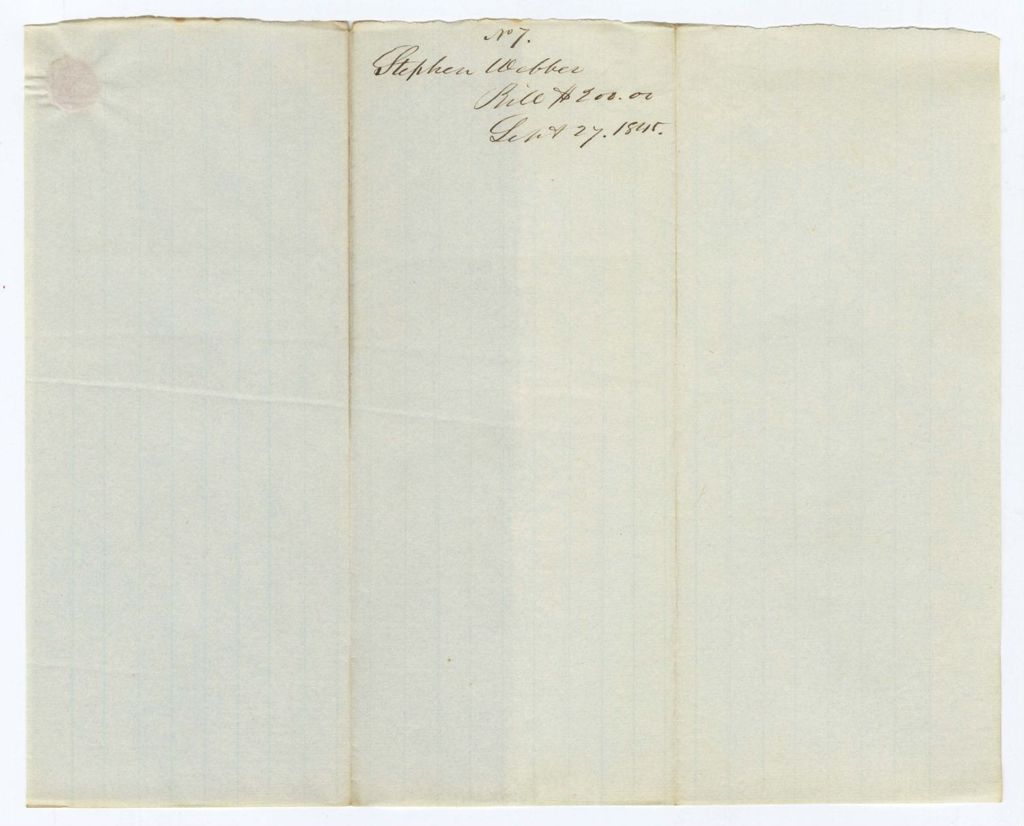 No 7.
Stephen Webber
Bill $200.00
Sept 27. 1845.